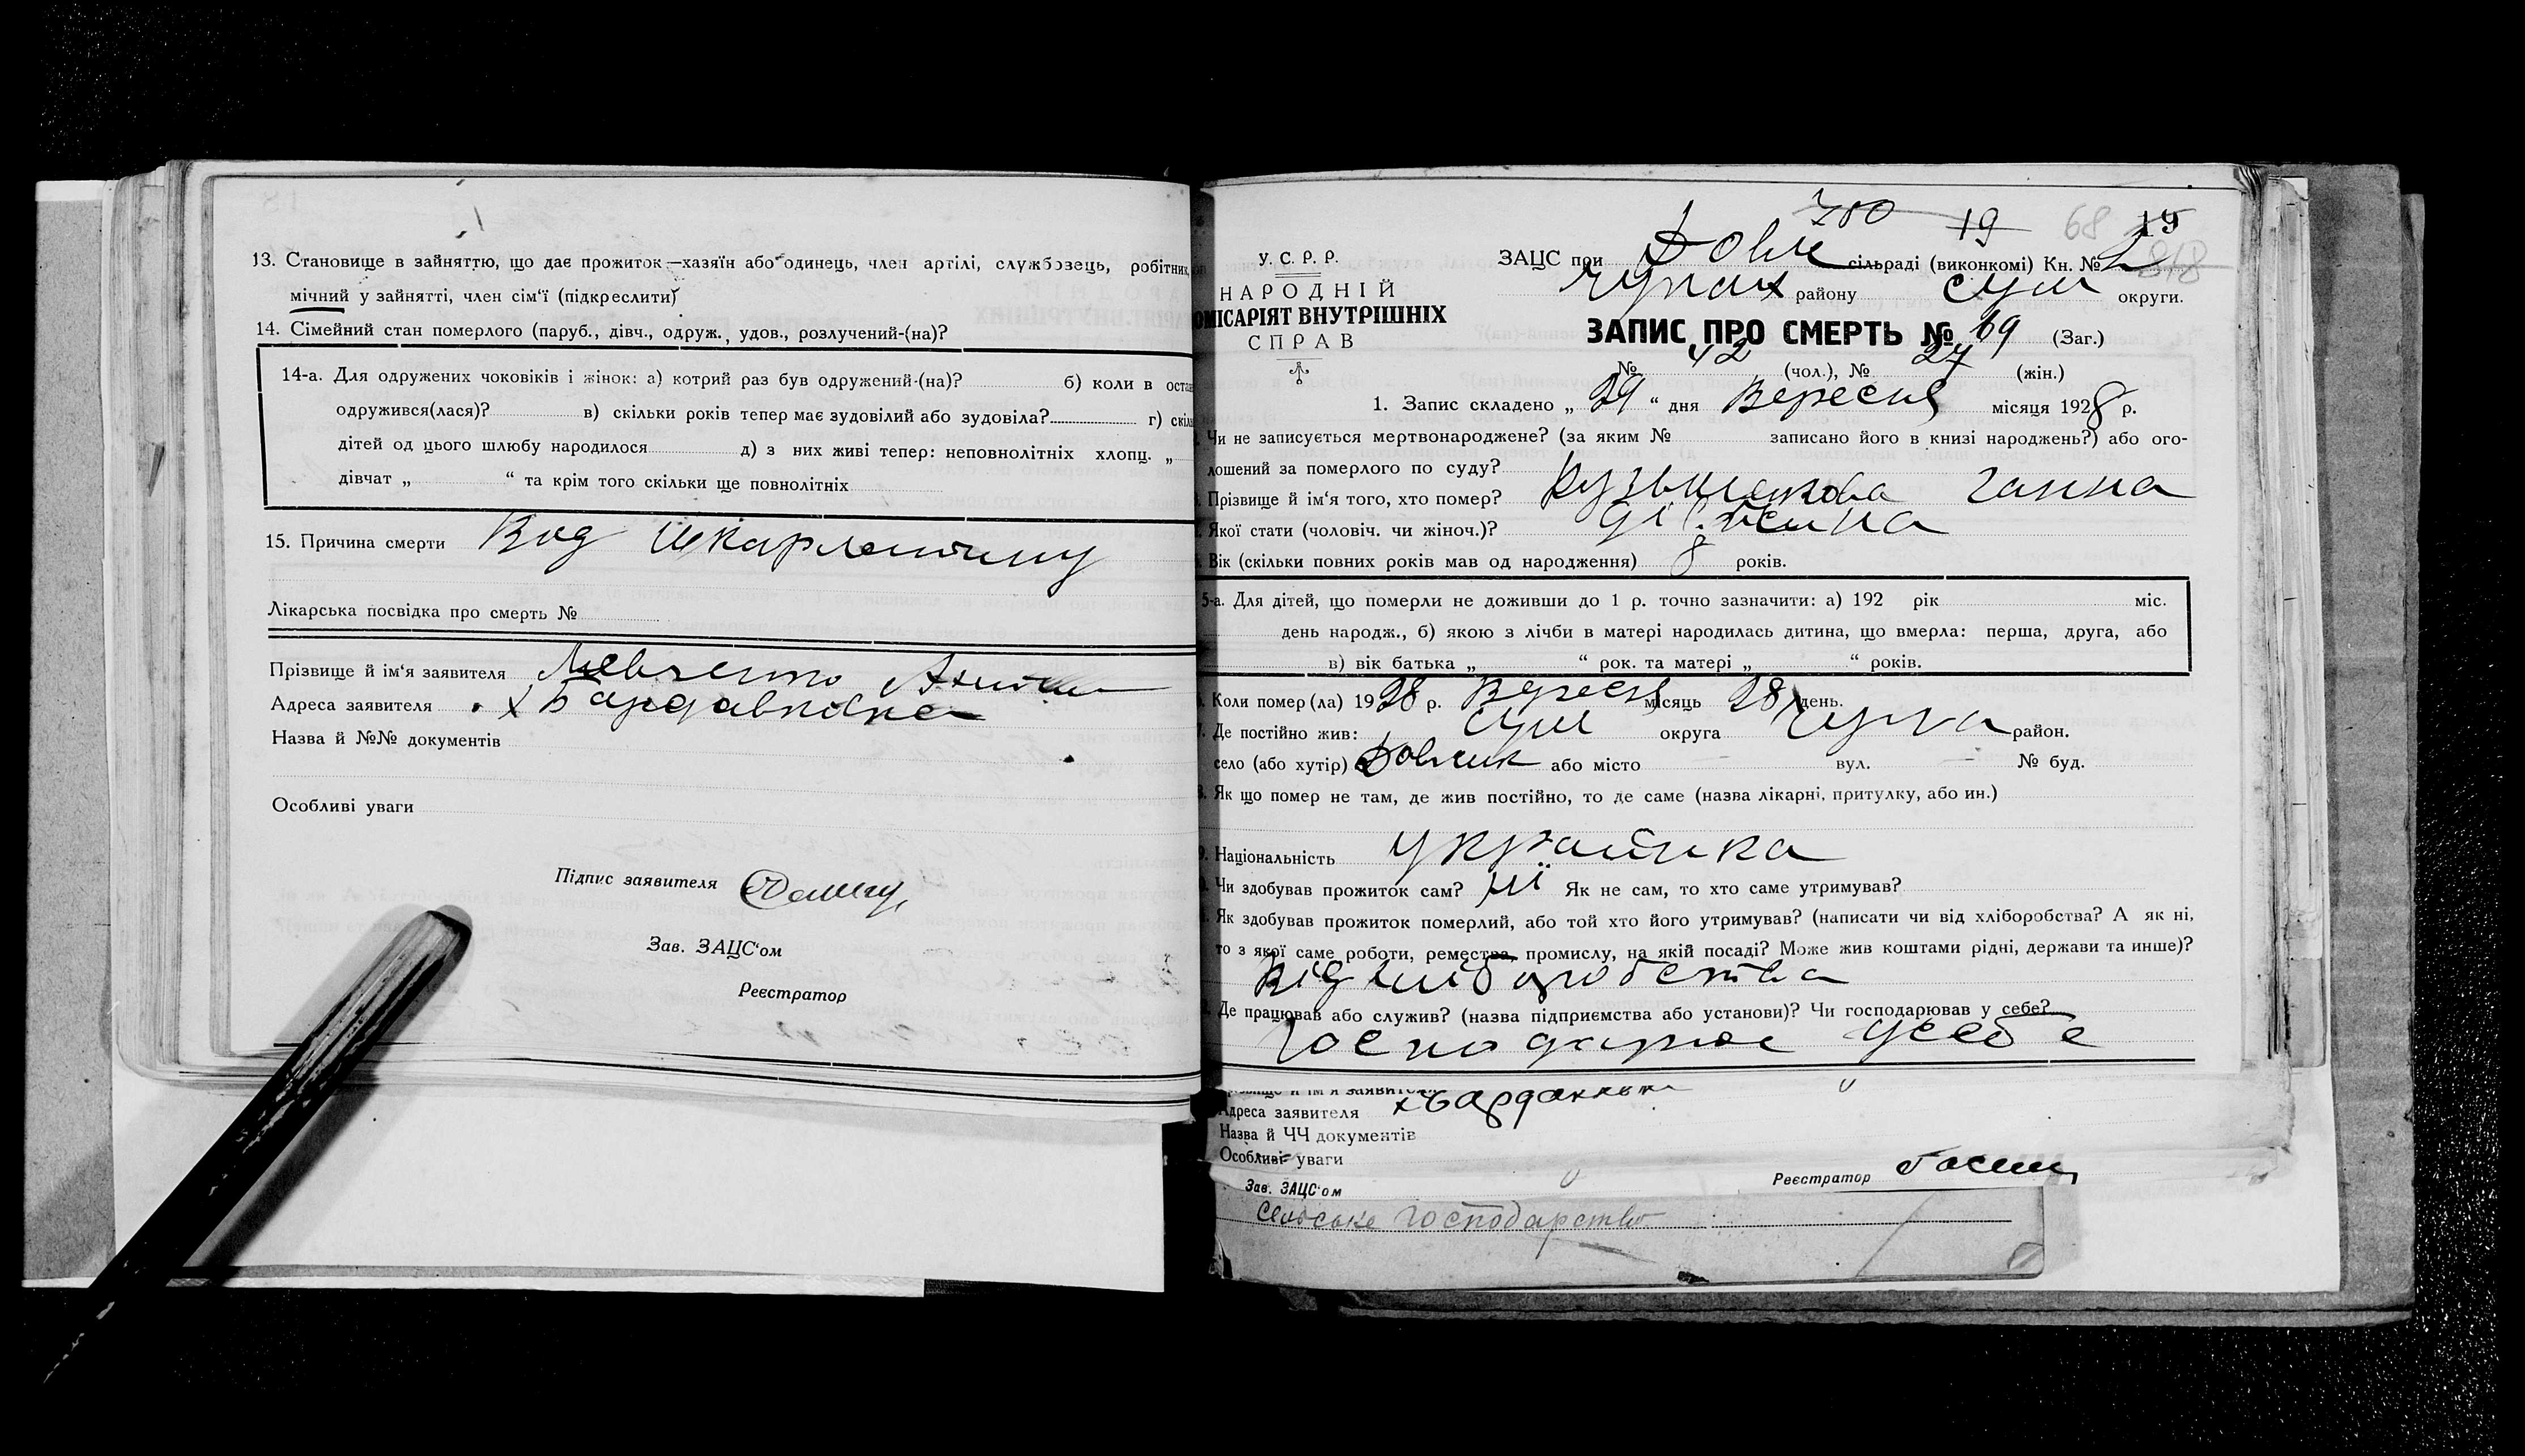 13. Становище в зайняттю, що дає прожиток—хазяїн або одинець, член артілі, службовець, робітник,
мічний у зайнятті, член сім'ї (підкреслити)
14. Сімейний стан померлого (паруб., дівч., одруж., удов., розлучений-(на)?
14-а. Для одружених чоковіків і жінок: а) котрий раз був одружений-(на)? б) коли в остан
одружився(лася)? в) скільки років тепер має зудовілий або зудовіла? г) скіль
дітей од цього шлюбу народилося д) з них живі тепер: неповнолітніх хлопц. „
дівчат „ “ та крім того скільки ще повнолітніх
15. Причина смерти Вид Шкарлатину
Лікарська посвідка про смерть №
Прізвище й ім'я заявителя Левченко
Адреса заявителя х
Назва й №№ документів
Особливі уваги
Підпис заявителя
Зав. ЗАЦС'ом
Реєстратор
700 19 68 19
818
У. С. Р. Р.
НАРОДНІЙ
ОМІСАРІЯТ ВНУТРІШНІХ
СПРАВ
ЗАЦС при Довж сільраді (виконкомі) Кн. № 2
Чупах району Сум округи.
ЗАПИС ПРО СМЕРТЬ № 69 (Заг.)
№ 42 (чол.), № 27 (жін.)
1. Запис складено „ 29 “ дня Вересня місяця 1928 р.
Чи не записується мертвонароджене? (за яким № записано його в книзі народжень?) або ого-
лошений за померлого по суду?
Прізвище й ім'я того, хто помер? Ганна
Якої стати (чоловіч. чи жіноч.)?
Вік (скільки повних років мав од народження) 8 років.
5-а. Для дітей, що померли не доживши до 1 р. точно зазначити: а) 192 рік міс.
день народж., б) якою з лічби в матері народилась дитина, що вмерла: перша, друга, або
в) вік батька „ “ рок. та матері „ “ років.
Коли помер(ла) 1928 р. Вересня місяць 28 день.
Де постійно жив: Сум округа Чупах район.
село (або хутір) Довжик або місто — вул. — № буд.
Як що помер не там, де жив постійно, то де саме (назва лікарні, притулку, або ин.)
9. Національність Українка
Чи здобував прожиток сам? ні Як не сам, то хто саме утримував?
Як здобував прожиток померлий, або той хто його утримував? (написати чи від хліборобства? А як ні,
то з якої саме роботи, ремества, промислу, на якій посаді? Може жив коштами рідні, держави та инше)?
Від хліборобства
Де працював або служив? (назва підприємства або установи)? Чи господарював у себе?
Господарює у себе
Прізвище й ім'я заявителя
Адреса заявителя
Назва й ЧЧ документів
Особливі уваги
Зав. ЗАЦС'ом Реєстратор
Сельське господарство